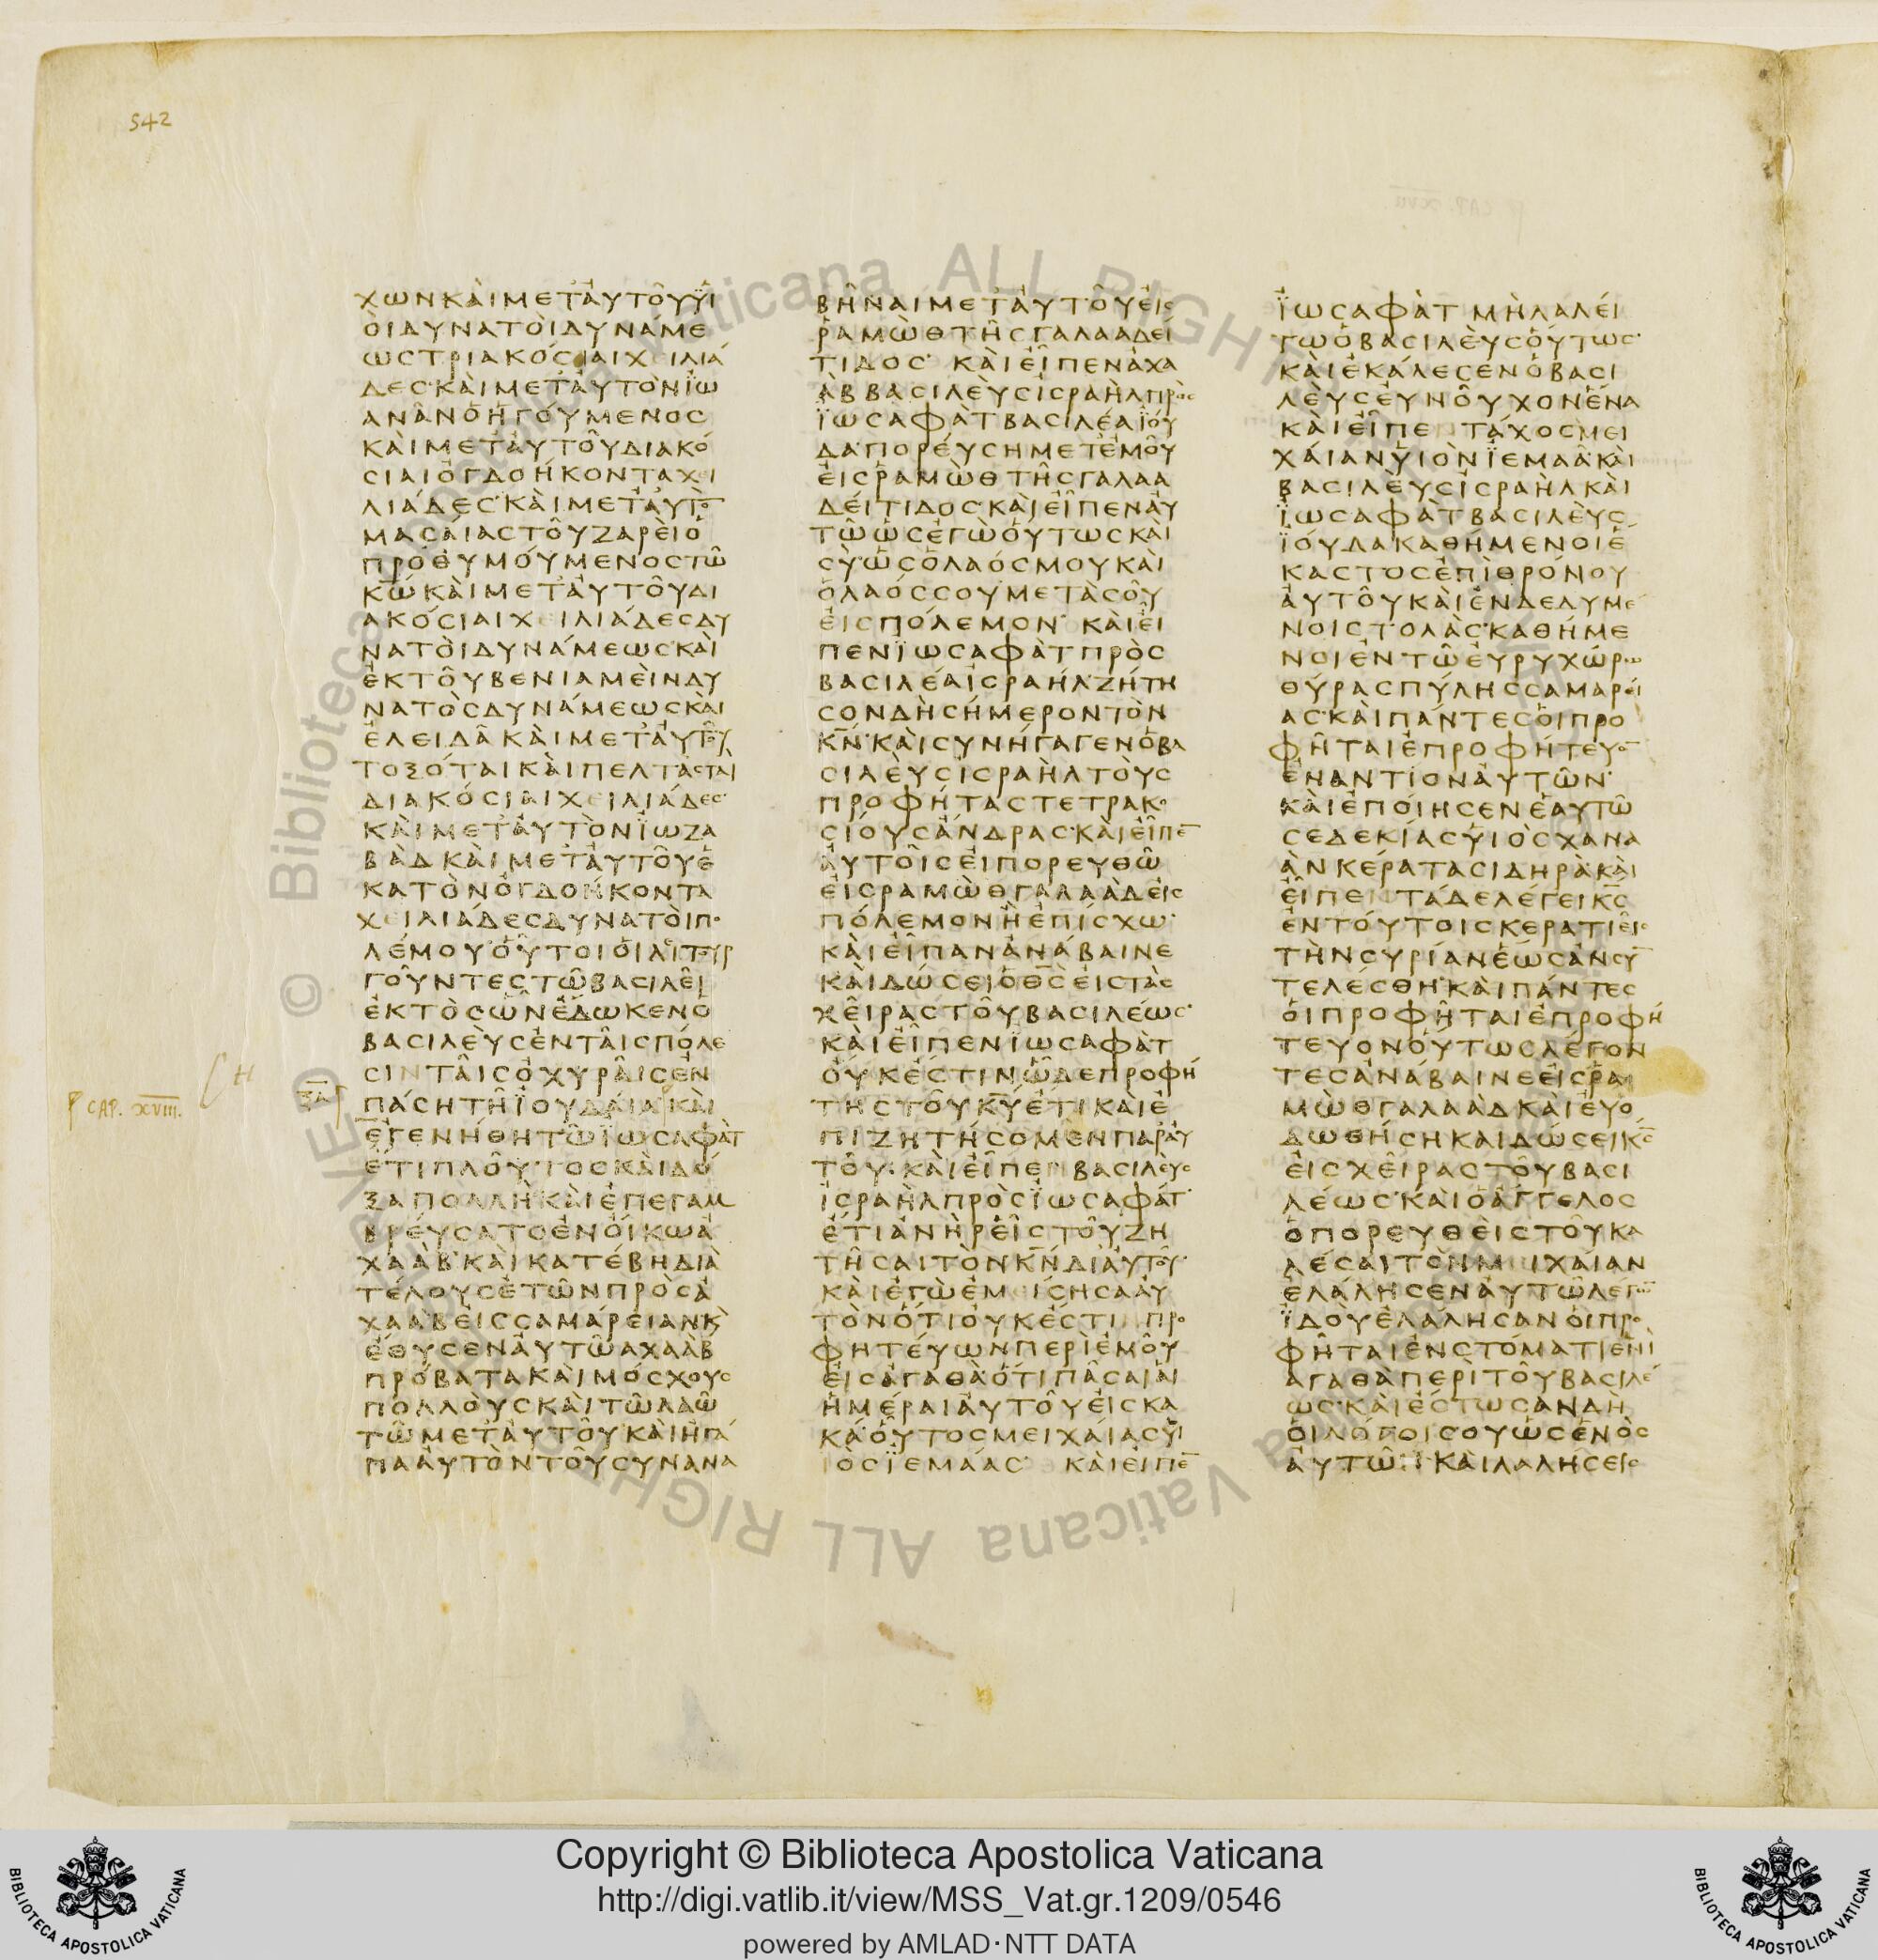 542
ΧΩΝΚΑΙΜΕΤΑΥΤΟΥΥΙ
ΟΙΔΥΝΑΤΟΙΔΥΝΑΜΕ
ΩΣΤΡΙΑΚΟΣΙΑΙΧΕΙΛΙΑ
ΔΕΣ·ΚΑΙΜΕΤΑΥΤΟΝΪΩ
ΑΝΑΝΟΗΓΟΥΜΕΝΟΣ
ΚΑΙΜΕΤΑΥΤΟΥΔΙΑΚΟ
ΣΙΑΙΟΓΔΟΗΚΟΝΤΑΧΕΙ
ΛΙΑΔΕΣ·ΚΑΙΜΕΤΑΥΤΟ̅
ΜΑΣΑΙΑΣΤΟΥΖΑΡΕΙΟ
ΠΡΟΘΥΜΟΥΜΕΝΟΣΤΩ
Κ̅Ω̅ΚΑΙΜΕΤΑΥΤΟΥΔΙ
ΑΚΟΣΙΑΙΧΕΙΛΙΑΔΕΣΔΥ
ΝΑΤΟΙΔΥΝΑΜΕΩΣ·ΚΑΙ
ΕΚΤΟΥΒΕΝΙΑΜΕΙΝΔΥ
ΝΑΤΟΣΔΥΝΑΜΕΩΣΚΑΙ
ΕΛΕΙΔΑΚΑΙΜΕΤΑΥΤΟΥ
ΤΟΞΟΤΑΙΚΑΙΠΕΛΤΑΣΤΑΙ
ΔΙΑΚΟΣΙΑΙΧΕΙΛΙΑΔΕΣ·
ΚΑΙΜΕΤΑΥΤΟΝΪΩΖΑ
ΒΑΔΚΑΙΜΕΤΑΥΤΟΥΕ
ΚΑΤΟΝΟΓΔΟΗΚΟΝΤΑ
ΧΕΙΛΙΑΔΕΣΔΥΝΑΤΟΙΠΟ
ΛΕΜΟΥ·ΟΥΤΟΙΟΙΛΙΤΟΥΡ
ΓΟΥΝΤΕΣΤΩΒΑΣΙΛΕΙ
ΕΚΤΟΣΩΝΕΔΩΚΕΝΟ
ΒΑΣΙΛΕΥΣΕΝΤΑΙΣΠΟΛΕ
ΣΙΝΤΑΙΣΟΧΥΡΑΙΣΕΝ
ΠΑΣΗΤΗΪΟΥΔΑΙΑ·ΚΑΙ
ΕΓΕΝΗΘΗΤΩΪΩΣΑΦΑΤ
ΕΤΙΠΛΟΥΤΟΣΚΑΙΔΟ
ΞΑΠΟΛΛΗΚΑΙΕΠΕΓΑΜ
ΒΡΕΥΣΑΤΟΕΝΟΙΚΩΑ
ΧΑΑΒ·ΚΑΙΚΑΤΕΒΗΔΙΑ
ΤΕΛΟΥΣΕΤΩΝΠΡΟΣΑ
ΧΑΑΒΕΙΣΣΑΜΑΡΕΙΑΝΚ
ΕΘΥΣΕΝΑΥΤΩΑΧΑΑΒ
ΠΡΟΒΑΤΑΚΑΙΜΟΣΧΟΥΣ
ΠΟΛΛΟΥΣΚΑΙΤΩΛΑΩ
ΤΩΜΕΤΑΥΤΟΥΚΑΙΗΠΑ
ΠΑΑΥΤΟΝΤΟΥΣΥΝΑΝΑ
CAP. XVIII.
ΒΗΝΑΙΜΕΤΑΥΤΟΥΕΙΣ
ΡΑΜΩΘΤΗΣΓΑΛΑΑΔΕΙ
ΤΙΔΟΣ· ΚΑΙΕΙΠΕΝΑΧΑ
ΑΒΒΑΣΙΛΕΥΣΙΣΡΑΗΛΠΡΟΣ
ΪΩΣΑΦΑΤΒΑΣΙΛΕΑΪΟΥ
ΔΑ·ΠΟΡΕΥΣΗΜΕΤΕΜΟΥ
ΕΙΣΡΑΜΩΘΤΗΣΓΑΛΑΑ
ΔΕΙΤΙΔΟΣ·ΚΑΙΕΙΠΕΝΑΥ
ΤΩΩΣΕΓΩΟΥΤΩΣΚΑΙ
ΣΥΩΣΟΛΑΟΣΜΟΥΚΑΙ
ΟΛΑΟΣΣΟΥΜΕΤΑΣΟΥ
ΕΙΣΠΟΛΕΜΟΝ· ΚΑΙΕΙ
ΠΕΝΪΩΣΑΦΑΤΠΡΟΣ
ΒΑΣΙΛΕΑΙΣΡΑΗΛ·ΖΗΤΗ
ΣΟΝΔΗΣΗΜΕΡΟΝΤΟΝ
Κ̅Ν̅·ΚΑΙΣΥΝΗΓΑΓΕΝΟΒΑ
ΣΙΛΕΥΣΙΣΡΑΗΛΤΟΥΣ
ΠΡΟΦΗΤΑΣΤΕΤΡΑΚΟ
ΣΙΟΥΣΑΝΔΡΑΣ·ΚΑΙΕΙΠΕ̅
ΑΥΤΟΙΣΕΙΠΟΡΕΥΘΩ
ΕΙΣΡΑΜΩΘΓΑΛΑΑΔΕΙΣ
ΠΟΛΕΜΟΝΗΕΠΙΣΧΩ·
ΚΑΙΕΙΠΑΝΑΝΑΒΑΙΝΕ
ΚΑΙΔΩΣΕΙΟΘ̅Σ̅ΕΙΣΤΑΣ
ΧΕΙΡΑΣΤΟΥΒΑΣΙΛΕΩΣ·
ΚΑΙΕΙΠΕΝΪΩΣΑΦΑΤ
ΟΥΚΕΣΤΙΝΩΔΕΠΡΟΦΗ
ΤΗΣΤΟΥΚ̅Υ̅ΕΤΙΚΑΙΕ
ΠΙΖΗΤΗΣΟΜΕΝΠΑΡΑΥ
ΤΟΥ·ΚΑΙΕΙΠΕΝΒΑΣΙΛΕΥΣ
ΙΣΡΑΗΛΠΡΟΣΪΩΣΑΦΑΤ·
ΕΤΙΑΝΗΡΕΙΣΤΟΥΖΗ
ΤΗΣΑΙΤΟΝΚ̅Ν̅ΔΙΑΥΤΟΥ·
ΚΑΙΕΓΩΕΜΕΙΣΗΣΑΑΥ
ΤΟΝΟΤΙΟΥΚΕΣΤΙΝΠΡΟ
ΦΗΤΕΥΩΝΠΕΡΙΕΜΟΥ
ΕΙΣΑΓΑΘΑ·ΟΤΙΠΑΣΑΙΑΙ
ΗΜΕΡΑΙΑΥΤΟΥΕΙΣΚΑ
ΚΑ·ΟΥΤΟΣΜΕΙΧΑΙΑΣΥΙ
ΟΣΪΕΜΑΑΣ· ΚΑΙΕΙΠΕ̅
ΪΩΣΑΦΑΤΜΗΛΑΛΕΙ
ΤΩΟΒΑΣΙΛΕΥΣΟΥΤΩΣ·
ΚΑΙΕΚΑΛΕΣΕΝΟΒΑΣΙ
ΛΕΥΣΕΥΝΟΥΧΟΝΕΝΑ
ΚΑΙΕΙΠΕΝΤΑΧΟΣΜΕΙ
ΧΑΙΑΝΥΙΟΝΪΕΜΑΑ·ΚΑΙ
ΒΑΣΙΛΕΥΣΙΣΡΑΗΛΚΑΙ
ΪΩΣΑΦΑΤΒΑΣΙΛΕΥΣ
ΪΟΥΔΑΚΑΘΗΜΕΝΟΙΕ
ΚΑΣΤΟΣΕΠΙΘΡΟΝΟΥ
ΑΥΤΟΥΚΑΙΕΝΔΕΔΥΜΕ
ΝΟΙΣΤΟΛΑΣ·ΚΑΘΗΜΕ
ΝΟΙΕΝΤΩΕΥΡΥΧΩΡΩ
ΘΥΡΑΣΠΥΛΗΣΣΑΜΑΡΕΙ
ΑΣ·ΚΑΙΠΑΝΤΕΣΟΙΠΡΟ
ΦΗΤΑΙΕΠΡΟΦΗΤΕΥΟ̅
ΕΝΑΝΤΙΟΝΑΥΤΩΝ·
ΚΑΙΕΠΟΙΗΣΕΝΕΑΥΤΩ
ΣΕΔΕΚΙΑΣΥΙΟΣΧΑΝΑ
ΑΝΚΕΡΑΤΑΣΙΔΗΡΑ·ΚΑΙ
ΕΙΠΕΝΤΑΔΕΛΕΓΕΙΚ̅Σ̅
ΕΝΤΟΥΤΟΙΣΚΕΡΑΤΙΕΙΣ
ΤΗΝΣΥΡΙΑΝΕΩΣΑΝΣΥ̅
ΤΕΛΕΣΘΗ·ΚΑΙΠΑΝΤΕΣ
ΟΙΠΡΟΦΗΤΑΙΕΠΡΟΦΗ
ΤΕΥΟΝΟΥΤΩΣΛΕΓΟΝ
ΤΕΣΑΝΑΒΑΙΝΕΕΙΣΡΑ
ΜΩΘΓΑΛΑΑΔΚΑΙΕΥΟ
ΔΩΘΗΣΗΚΑΙΔΩΣΕΙΚ̅Σ̅
ΕΙΣΧΕΙΡΑΣΤΟΥΒΑΣΙ
ΛΕΩΣ·ΚΑΙΟΑΓΓΕΛΟΣ
ΟΠΟΡΕΥΘΕΙΣΤΟΥΚΑ
ΛΕΣΑΙΤΟΝΜΕΙΧΑΙΑΝ
ΕΛΑΛΗΣΕΝΑΥΤΩΛΕΓΩ̅
ΪΔΟΥΕΛΑΛΗΣΑΝΟΙΠΡΟ
ΦΗΤΑΙΕΝΣΤΟΜΑΤΙΕΝΙ
ΑΓΑΘΑΠΕΡΙΤΟΥΒΑΣΙΛΕ
ΩΣ·ΚΑΙΕΣΤΩΣΑΝΔΗ
ΟΙΛΟΓΟΙΣΟΥΩΣΕΝΟΣ
ΑΥΤΩΝ·ΚΑΙΛΑΛΗΣΕΙΣ
Copyright © Biblioteca Apostolica Vaticana
http://digi.vatlib.it/view/MSS_Vat.gr.1209/0546
powered by AMLAD·NTT DATA
BIBLIOTECA APOSTOLICA VATICANA
BIBLIOTECA APOSTOLICA VATICANA